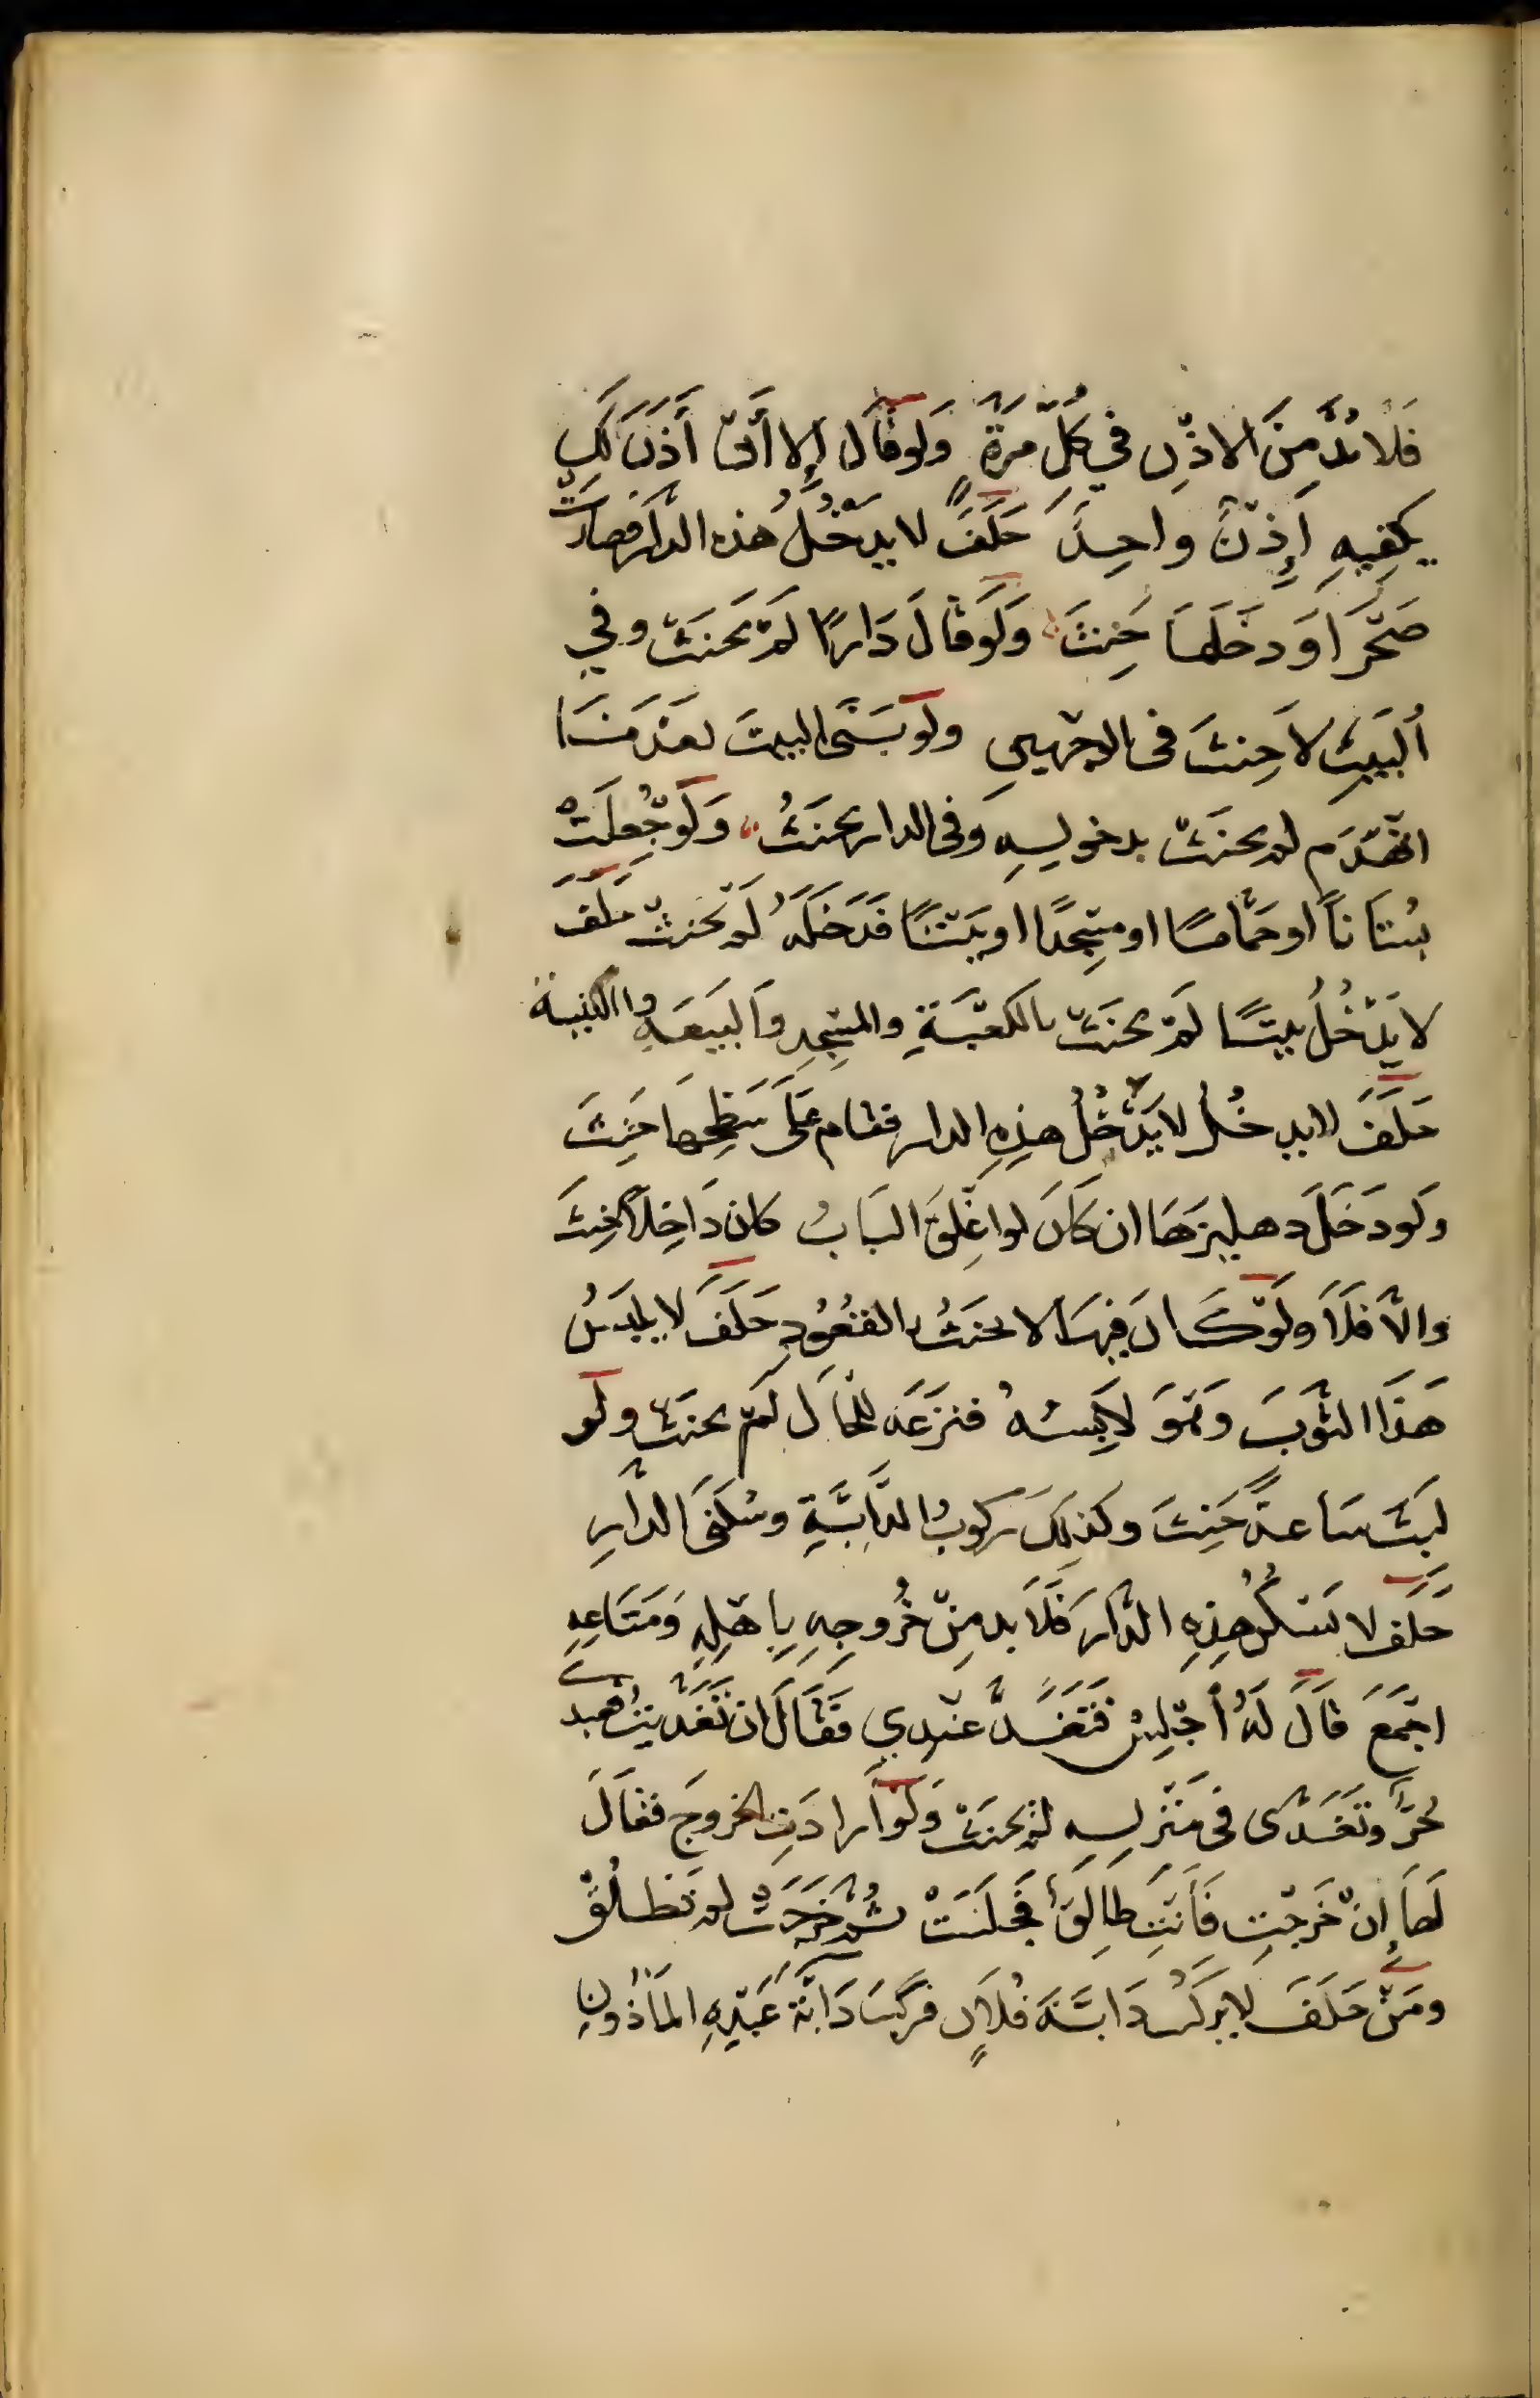 فَلَا بُدَّ مِنَ الاذْنِ فِي كُلِّ مَرَّةٍ وَلَوقَالَ إِلا أَنْ أَذَنَ لَكِ
يكفِيهِ إِذْنٌ واحِدٌ حَلَفَ لا يدْخُلُ هذه الدار فصارتْ
صَحْرَاوَ دخَلَهَا حَنِثَ وَلَوقَالَ دَارًا لَمْ يَحنَثْ وفِي
ألبَيتِ لاَ حِنثَ فى الوجهينِ ولو بَنَى البيتَ بعْدَ مَا
انْهَدَمَ لم يحنَثْ بدخولِهِ وَفى الدار يحنَثُ وَلَوجُعِلَتْ
بُستَانًا اوحَمَّامًا اومَسْجِدًا اوبَيْتًا فَدَخَلَهُ لَم يَحنثْ حَلَفَ
لا يَدْخُلُ بيتًا لَمْ يحنَثْ بالكعْبَةِ والمسْجِدِ وَالبَيعَةِ والكنيسة
حَلَفَ لايدخُلُ لا يَدْخُلُ هذِهِ الدار فقام عَلَى سَطْحِها حَنِثَ
وَلَودَخَلَ دهليزَهَا ان كَانَ لواغْلِقَ البَابُ كان دَاخِلاً حَنِثَ
والاَّ فَلاَ وَلَوْكَانَ فِيهَا لا يحنَثُ بالقُعُودِ حَلَفَ لا يلبَسُ
هَذَا الثَّوبَ وَهُوَ لاَبِسُهُ فنزَعَه للحَالِ لَمْ يحنَثْ ولَو
لَبِثَ سَاعةً حَنِثَ وكذلِكَ ركوبُ الدَّابَّةِ وسُكْنَى الدَّارِ
حَلَف لا يَسْكُنُ هذِهِ الدَّارَ فَلاَ بد مِنْ خُروجِهِ بِاهْلِهِ وَمَتَاعِهِ
اجْمَعَ قالَ لَهُ أجْلِسْ فتَغَدَّ عنْدِي فَقَالَ ان تَغَدَّيتُ فعبدى
حُرٌّ وتَغَدَّى فى مَنْزِلِهِ لم يحنَثْ وَلَوارادَتِ الخروجَ فقالَ
لَهاَ إِنْ خَرَجْتِ فَأَنتِ طَالِقٌ فَجَلَسَتْ ثُم خَرَجَتْ لم تَطْلُقْ
ومَنْ حَلَفَ لا يركَبُ دَابَّةَ فُلاَنٍ فركِبَ دَابَّةَ عَبْدِهِ المَأذُونِ